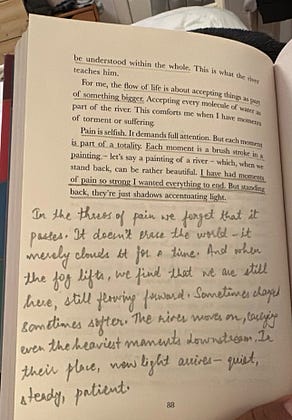 be understood within the whole. This is what the river
teaches him.
For me, the flow of life is about accepting things as part
of something bigger. Accepting every molecule of water as
part of the river. This comforts me when I have moments
of torment or suffering.
Pain is selfish. It demands full attention. But each moment
is part of a totality. Each moment is a brush stroke in a
painting – let's say a painting of a river – which, when we
stand back, can be rather beautiful. I have had moments
of pain so strong I wanted everything to end. But standing
back, they're just shadows accentuating light.
In the throes of pain we forget that it
passes. It doesn't erase the world – it
merely clouds it for a time. And when
the fog lifts, we find that we are still
here, still flowing forward. Sometimes changed
sometimes softer. The river moves on, carrying
even the heaviest moments downstream. In
their place, new light arrives – quiet,
steady, patient.
88